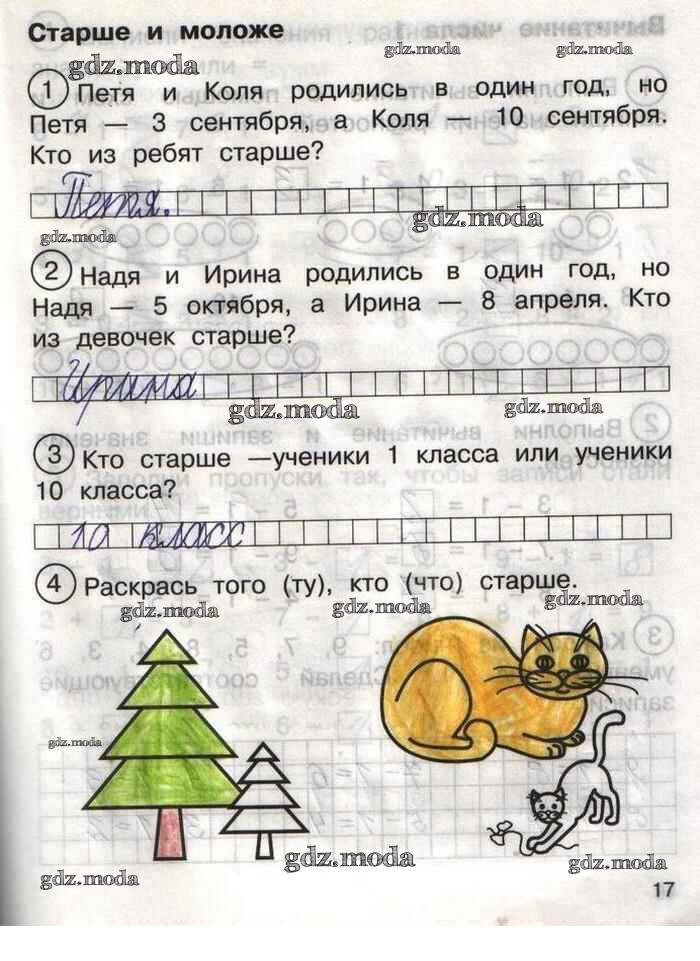 Старше и моложе
gdz.moda
gdz.moda
1 Петя и Коля родились в один год, но
Петя — 3 сентября, а Коля — 10 сентября.
Кто из ребят старше?
Петя.
gdz.moda
gdz.moda
2 Надя и Ирина родились в один год, но
Надя — 5 октября, а Ирина — 8 апреля. Кто
из девочек старше?
Ирина
gdz.moda
gdz.moda
3 Кто старше —ученики 1 класса или ученики
10 класса?
10 класс
4 Раскрась того (ту), кто (что) старше.
gdz.moda
gdz.moda
gdz.moda
gdz.moda
gdz.moda
gdz.moda
gdz.moda
17